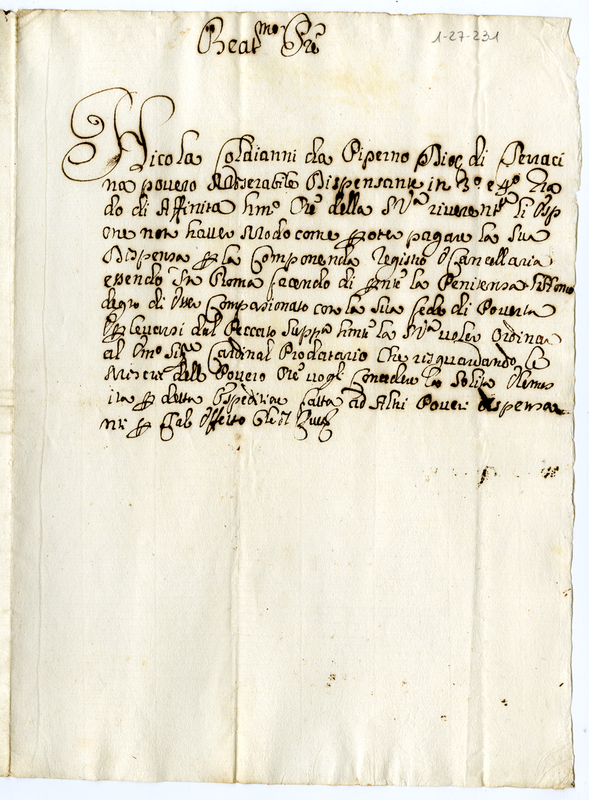 Beat.mo P̃re
1-27-231
Nicola Coldianni da Piperno Dioc. di Terraci
na povero Miserabile Dispensante in 3.o e 4.o Gra
do di Affinità hmo Ore della S.V.a riverent.e li Esp
one non haver Modo come poter pagare la Sua
Dispensa p la Componenda Registro e Cancellaria
essendo In Roma facendo di
la Penitenza
degno di
Compasionato con la Sua fede di Povertà
E p levarsi dal Peccato Supp.a hmte la S.V.a voler Ordinar
al Emo Sig.r Cardinal Prodatario che risguardando le
Miserie del Povero Ore vogl. Conceder la Solita Elemo
sina p detta Speditione fatta ad Altri Poveri dispensa
nti p Gral Effetto Che il